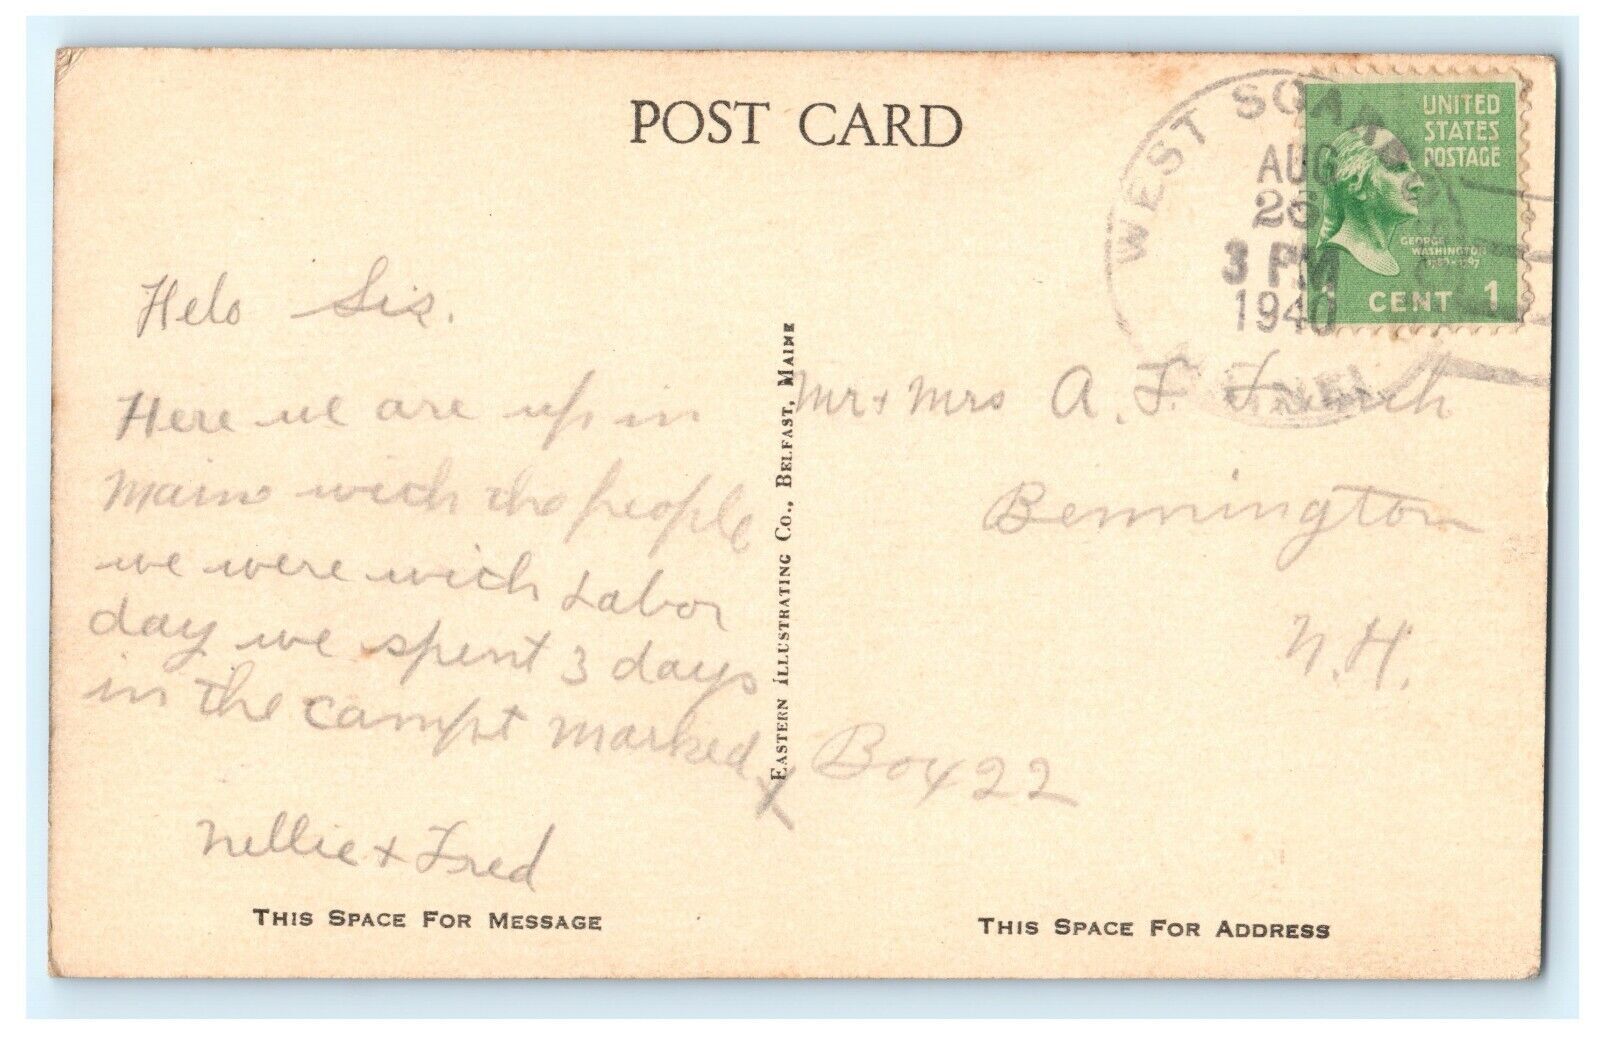 POST CARD
WEST
AUG
1940
3 PM
UNITED
STATES
POSTAGE
GEORGE
WASHINGTON
CENT 1
Helo Sis.
Here we are up in
Maine with the people
we were with Labor
day we spent 3 days
in the campt marked X
Nellie + Fred
THIS SPACE FOR MESSAGE
EASTERN ILLUSTRATING CO., BELFAST, MAINE
Mr + Mrs A. F.
Bennington
N.H.
Box 22
THIS SPACE FOR ADDRESS